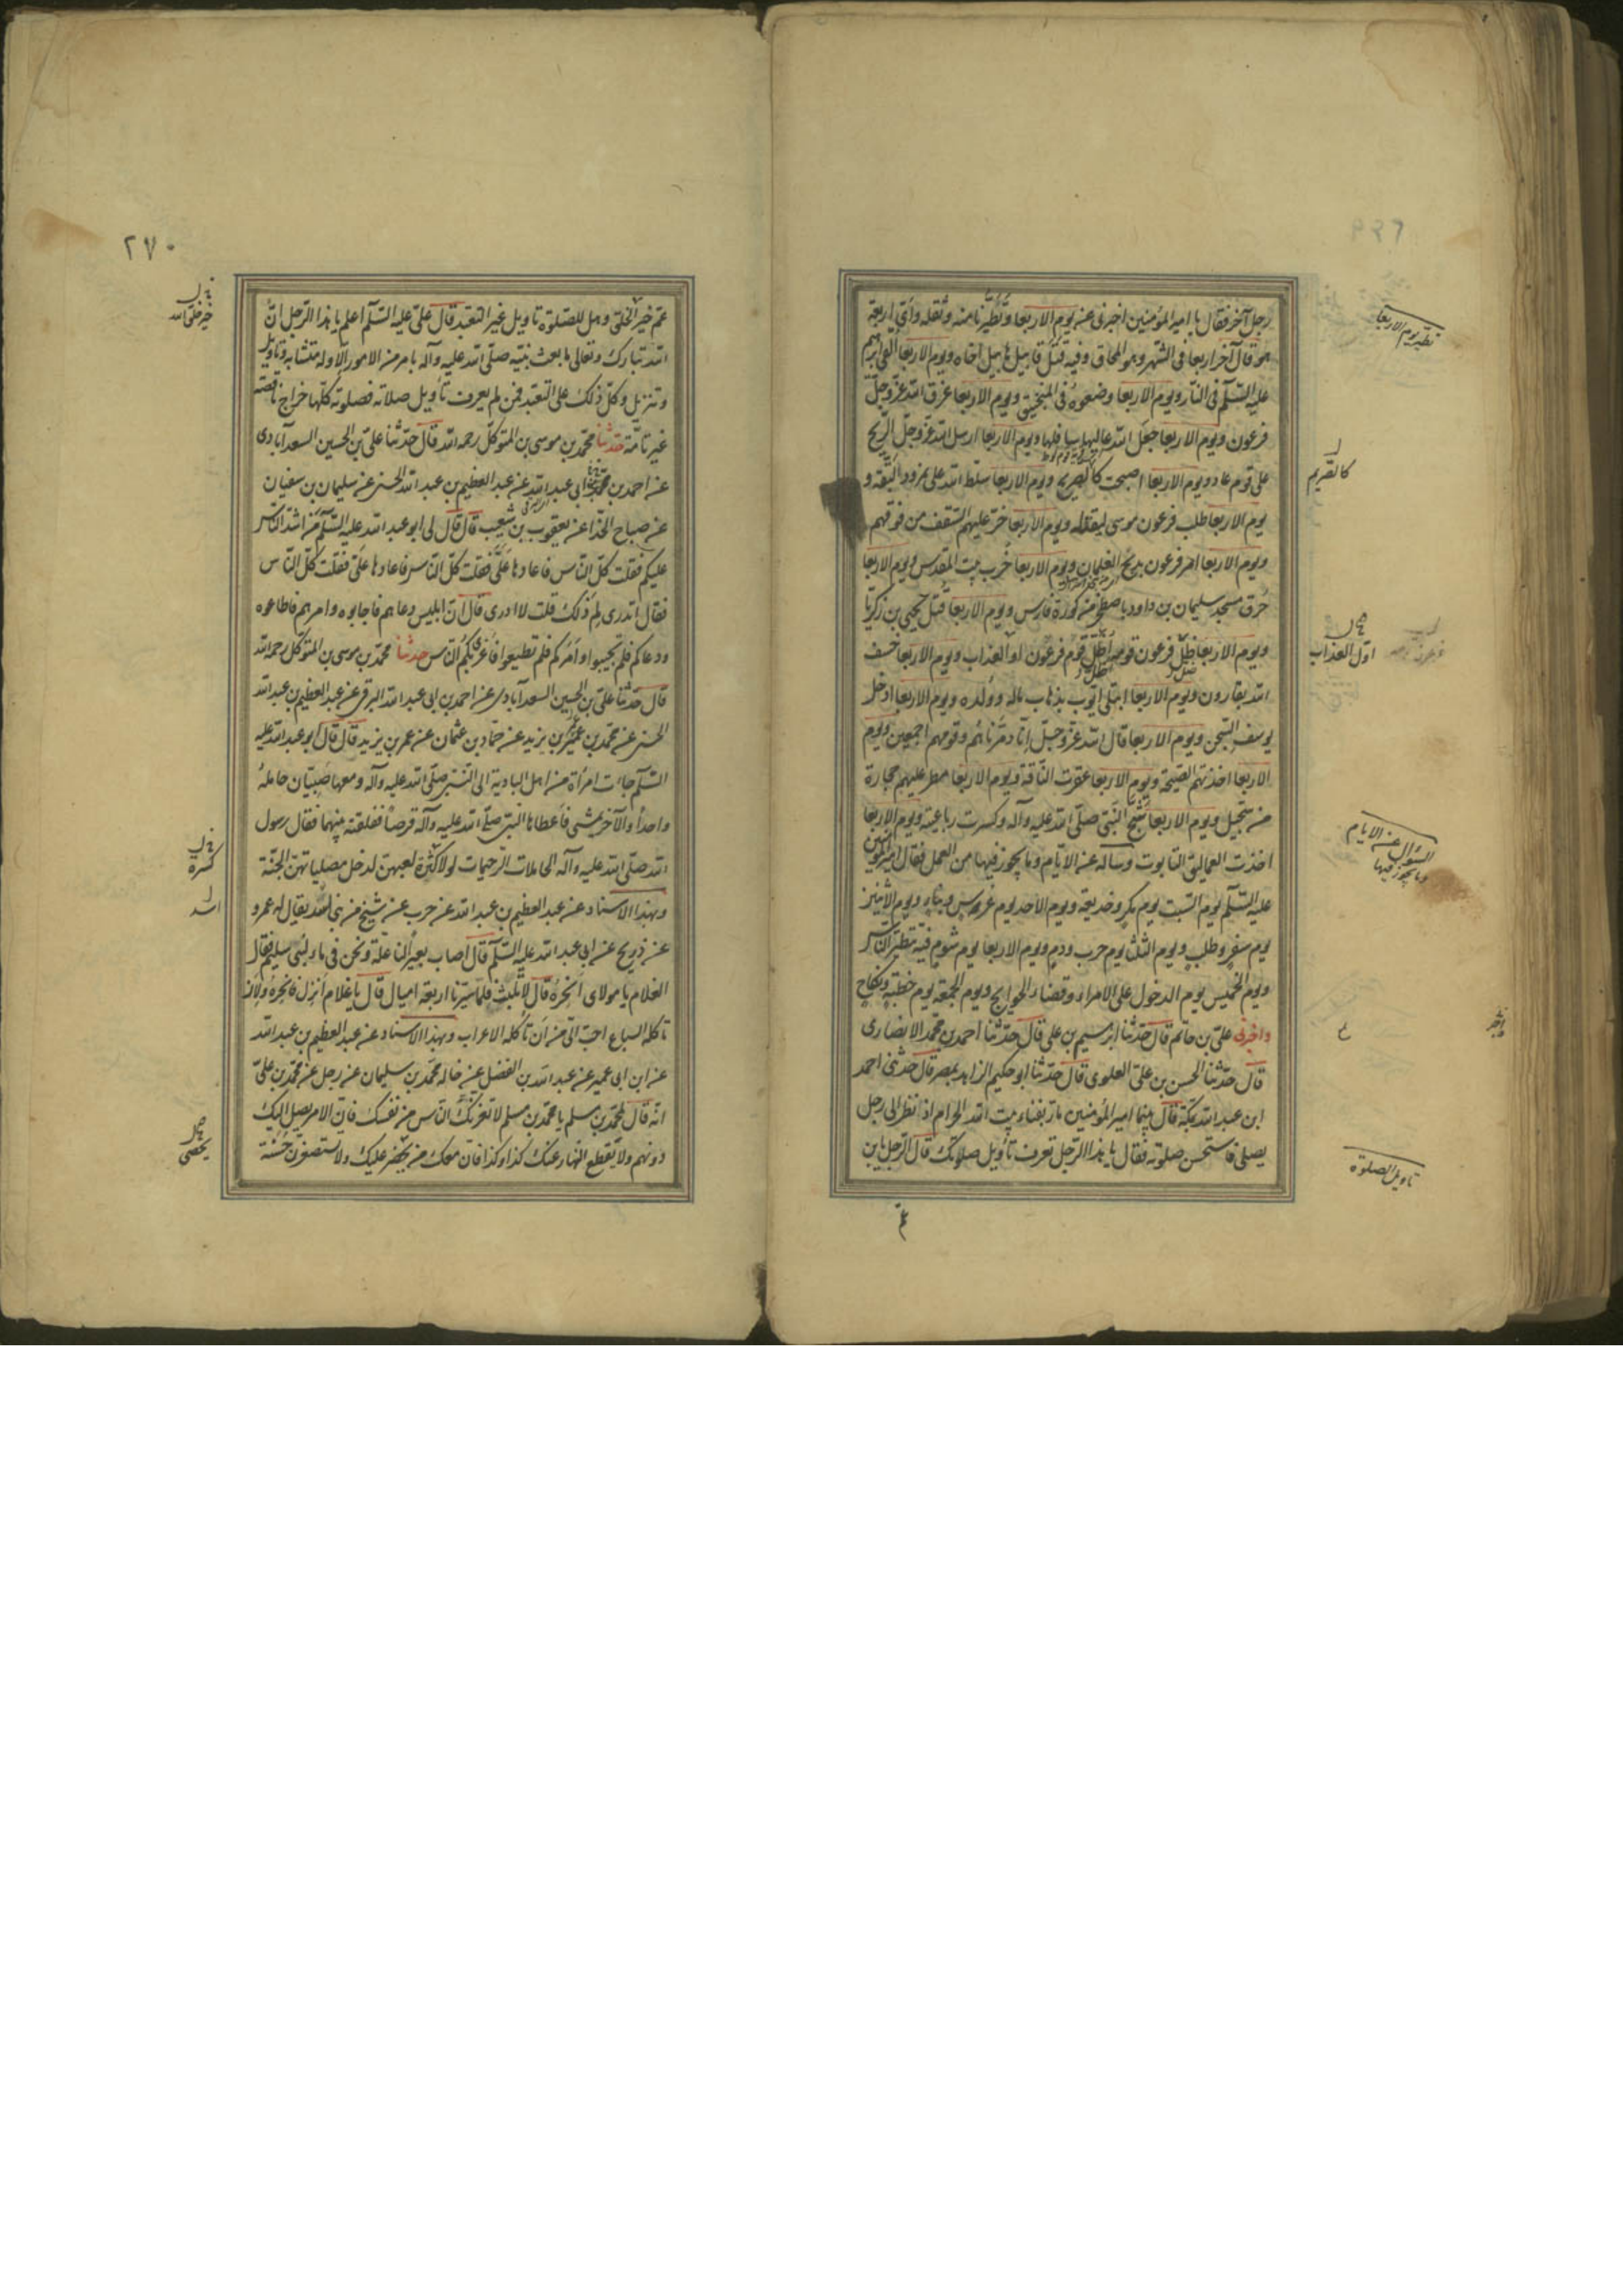 رجل آخر فقال يا امير المؤمنين اخبرنى عن يوم الاربعا وتَطَيُّرنا منه وثقله وأىّ اربعة
هو قال آخر اربعا فى الشهر وهو المحاق وفيه قتل قابيل هابيل اخاه ويوم الاربعا القى ابرهيم
عليه السّلم فى النار ويوم الاربعا وضعوه فى المنجنيق ويوم الاربعا غرق الله عزّ وجلّ
فرعون ويوم الاربعا جعل الله عاليها سافلها ويوم الاربعا ارسل الله عزّ وجلّ الريح
على قوم عاد ويوم الاربعا اصبحت كالصريم ويوم الاربعا سلط الله على نمرود البقة و
يوم الاربعا طلب فرعون موسى ليقتله ويوم الاربعا خرّ عليهم السّقف من فوقهم
ويوم الاربعا امر فرعون بذبح الغلمان ويوم الاربعا خُرب بيت المقدس ويوم الاربعا
حُرق مسجد سليمان بن داود باصطخر من كورة فارس ويوم الاربعا قُتل يحيى بن زكريّا
ويوم الاربعا اظلّ قوم فرعون اول العذاب ويوم الاربعا خسف
الله بقارون ويوم الاربعا ابتلى ايّوب بذهاب ماله وولده ويوم الاربعا ادخل
يوسف السّجن ويوم الاربعا قال الله عزّ وجلّ انّا دمّرناهم وقومهم اجمعين ويوم
الاربعا اخذتهم الصيحة ويوم الاربعا عقرت النّاقة ويوم الاربعا مطر عليهم حجارة
من سجّيل ويوم الاربعا شُجّ النّبى صلّى الله عليه وآله وكسرت رباعيته ويوم الاربعا
اخذت العماليق التابوت وساله عن الايّام وما يجوز فيها من العمل فقال امير المؤمنين
عليه السّلم يوم السّبت يوم مكر وخديعة ويوم الاحد يوم غرس وبناء ويوم الاثنين
يوم سفر وطلب ويوم الثلثا يوم حرب ودم ويوم الاربعا يوم شوم فيه يتطيّر النّاس
ويوم الخميس يوم الدخول على الامراء وقضاء الحوايج ويوم الجمعة يوم خطبة ونكاح
واخبرنى علىّ بن حاتم قال حدّثنا ابرهيم بن على قال حدّثنا احمد بن محمّد الانصارى
قال حدّثنا الحسن بن علىّ العلوى قال حدّثنا ابو حكيم الزاهد بمصر قال حدثنى احمد
ابن عبد الله بمكّة قال بينما امير المؤمنين مارّ بفناء بيت الله الحرام اذا نظر الى رجل
يصلى فاستحسن صلوته فقال يا هذا الرّجل تعرف تأويل صلوتك قال الرّجل يا بن
تطيّر يوم الاربعا
كالصّريم
اول العذاب
السؤال عن الايام
وما يجوز فيها
تاويل الصلوة
٢٧٠
عمّ خير الخلق وهل للصلوة تاويل غير التعبّد قال علىّ عليه السّلم اعلم يا هذا الرجل انّ
الله تبارك وتعالى ما بعث نبيّه صلّى الله عليه وآله بامر من الامور الّا وله متشابه وتاويل
وتنزيل وكلّ ذلك على التعبّد فمن لم يعرف تأويل صلاته فصلوته كلّها خداج ناقصة
غير تامّة حدّثنا محمّد بن موسى بن المتوكّل رحمه الله قال حدّثنا علىّ بن الحسين السعدآبادى
عن احمد بن ابى عبد الله عن عبد العظيم بن عبد الله الحسنى عن سليمان بن سفيان
عن صباح الحذّا عن يعقوب بن شعيب قال قال لى ابو عبد الله عليه السّلم مَن اشدّ النّاس
عليكم فقلت كلّ النّاس فاعادها علىَّ فقلت كلّ النّاس فاعادها علىّ فقلت كلّ النّاس
فقال اتدرى لم ذلك قلت لا ادرى قال انّ ابليس دعاهم فاجابوه وامرهم فاطاعوه
ودعاكم فلم تجيبوا وأمركم فلم تطيعوا فاغرى بكم النّاس حدّثنا محمّد بن موسى بن المتوكّل رحمه الله
قال حدّثنا علىّ بن الحسين السعدآبادى عن احمد بن ابى عبد الله البرقى عن عبد العظيم بن عبد الله
الحسنى عن محمّد بن عمر بن يزيد عن حمّاد بن عثمان عن عمر بن يزيد قال قال ابو عبد الله عليه
السّلم جاءت امرأة من اهل البادية الى النّبى صلّى الله عليه وآله ومعها صَبيّان حاملةً
واحداً والآخر يمشى فأعطاها النبىّ صلّى الله عليه وآله قرصاً ففلقته بينهما فقال رسول
الله صلّى الله عليه وآله الحاملات الرحيمات لولا كثرة لعبهنّ لدخل مصلياتهنّ الجنّة
وبهذا الاسناد عن عبد العظيم بن عبد الله عن حرب عن شيخ من بنى اسد يقال له عمرو
عن ذريح عن ابى عبد الله عليه السّلم قال اصاب بعيراً لنا علّة ونحن فى ماء لبنى سليم فقال
الغلام يا مولاى أنحرُه قال لا تلبث فلمّا سرنا اربعة اميال قال يا غلام انزل فانحره ولان
تأكله السباع احبّ الىّ من ان تأكله الاعراب وبهذا الاسناد عن عبد العظيم بن عبد الله
عن ابن ابى عمير عن عبد الله بن الفضل عن خاله محمّد بن سليمان عن رجل عن محمّد بن علىّ
انّه قال لمحمّد بن مسلم يا محمّد بن مسلم لا تغرنّك النّاس من نفسك فانّ الامر يصل اليك
دونهم ولا تقطع النّهار عنك كذا وكذا فانّ معك من يحضر عليك ولا تستصغرنّ حسنة
خير خلق الله
كسرة
اسد
يحصى